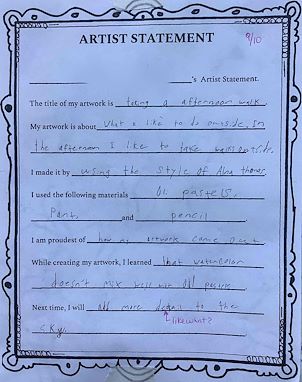 ARTIST STATEMENT 9/10
's Artist Statement.
The title of my artwork is taking a afternoon walk.
My artwork is about what I like to do outside. In
the afternoon I like to take walks outside.
I made it by using the style of Alma thomas.
I used the following materials oil pastels,
Paint, and pencil
I am proudest of how my artwork came out
While creating my artwork, I learned that watercolor
doesn't mix well with oil pastels
Next time, I will add more detail to the
sky.
like what?